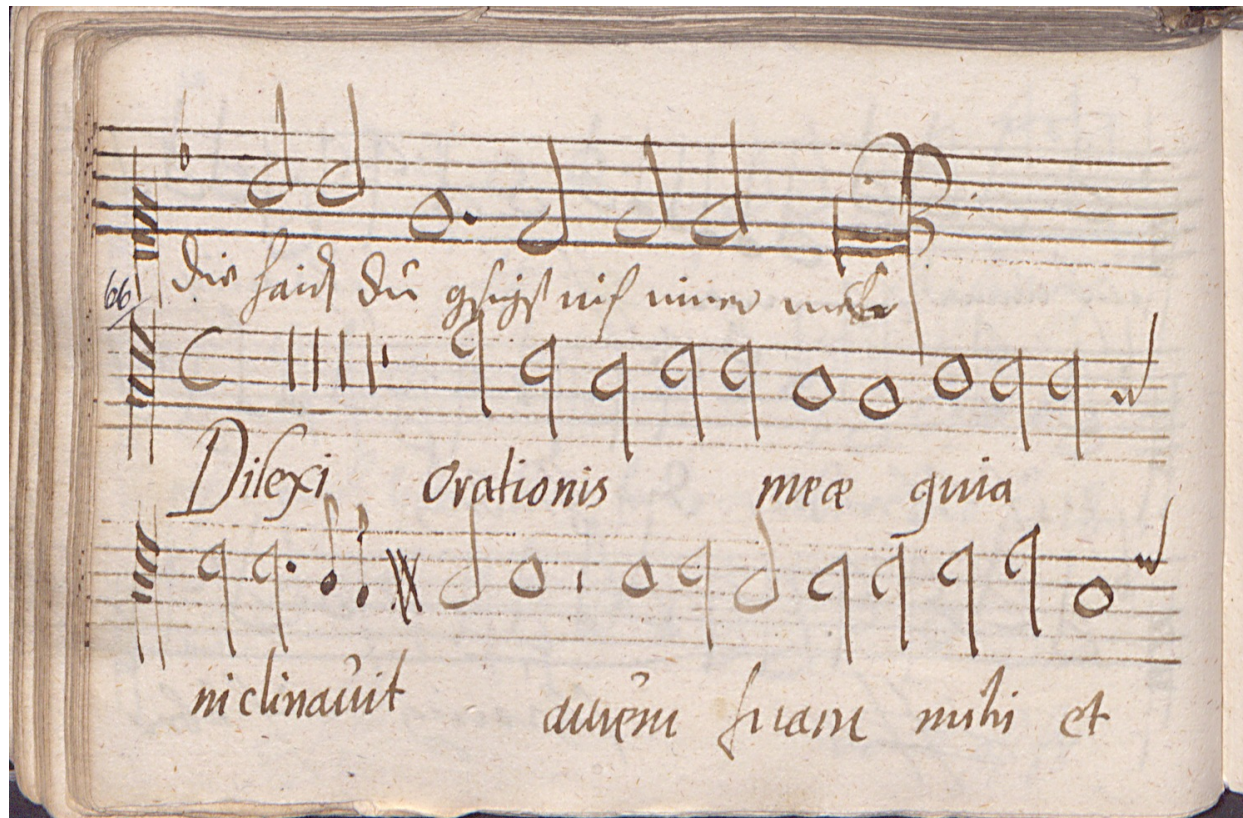 die haid du nit nimer mehr
66
Dilexi orationis meæ quia
inclinavit aurem suam mihi et